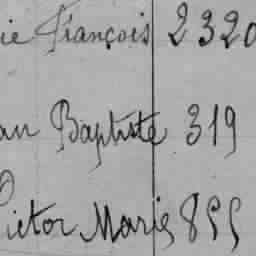 ie François 2320
an Baptiste 319
Victor Marie 855